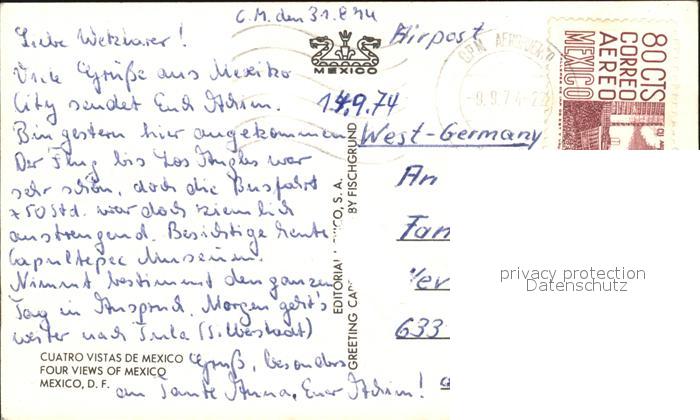 C.M. den 31.8.74
Liebe Wetzlarer!
Viele Grüße aus Mexiko
City sendet Euch Achim.
Bin gestern hier angekommen
Der Flug bis Los Angles war
sehr schön, doch die Busfahrt
≠50 Std. war doch ziemlich
anstrengend. Besichtige heute
Capultepec Museum.
Nimmt bestimmt den ganzen
Tag in Anspruch. Morgen geht's
weiter nach Tula (S. Westadt)
Gruß, besonders
an Tante Anna, Euer Achim!
CUATRO VISTAS DE MEXICO
FOUR VIEWS OF MEXICO
MEXICO, D. F.
MEXICO
EDITORIAL MEXICO, S. A.
GREETING CARD BY FISCHGRUND
Airpost
14.9.74
West-Germany
An
Fam
633
80 CTS
CORREO
AEREO
MEXICO
-9.9.74-22
privacy protection
Datenschutz